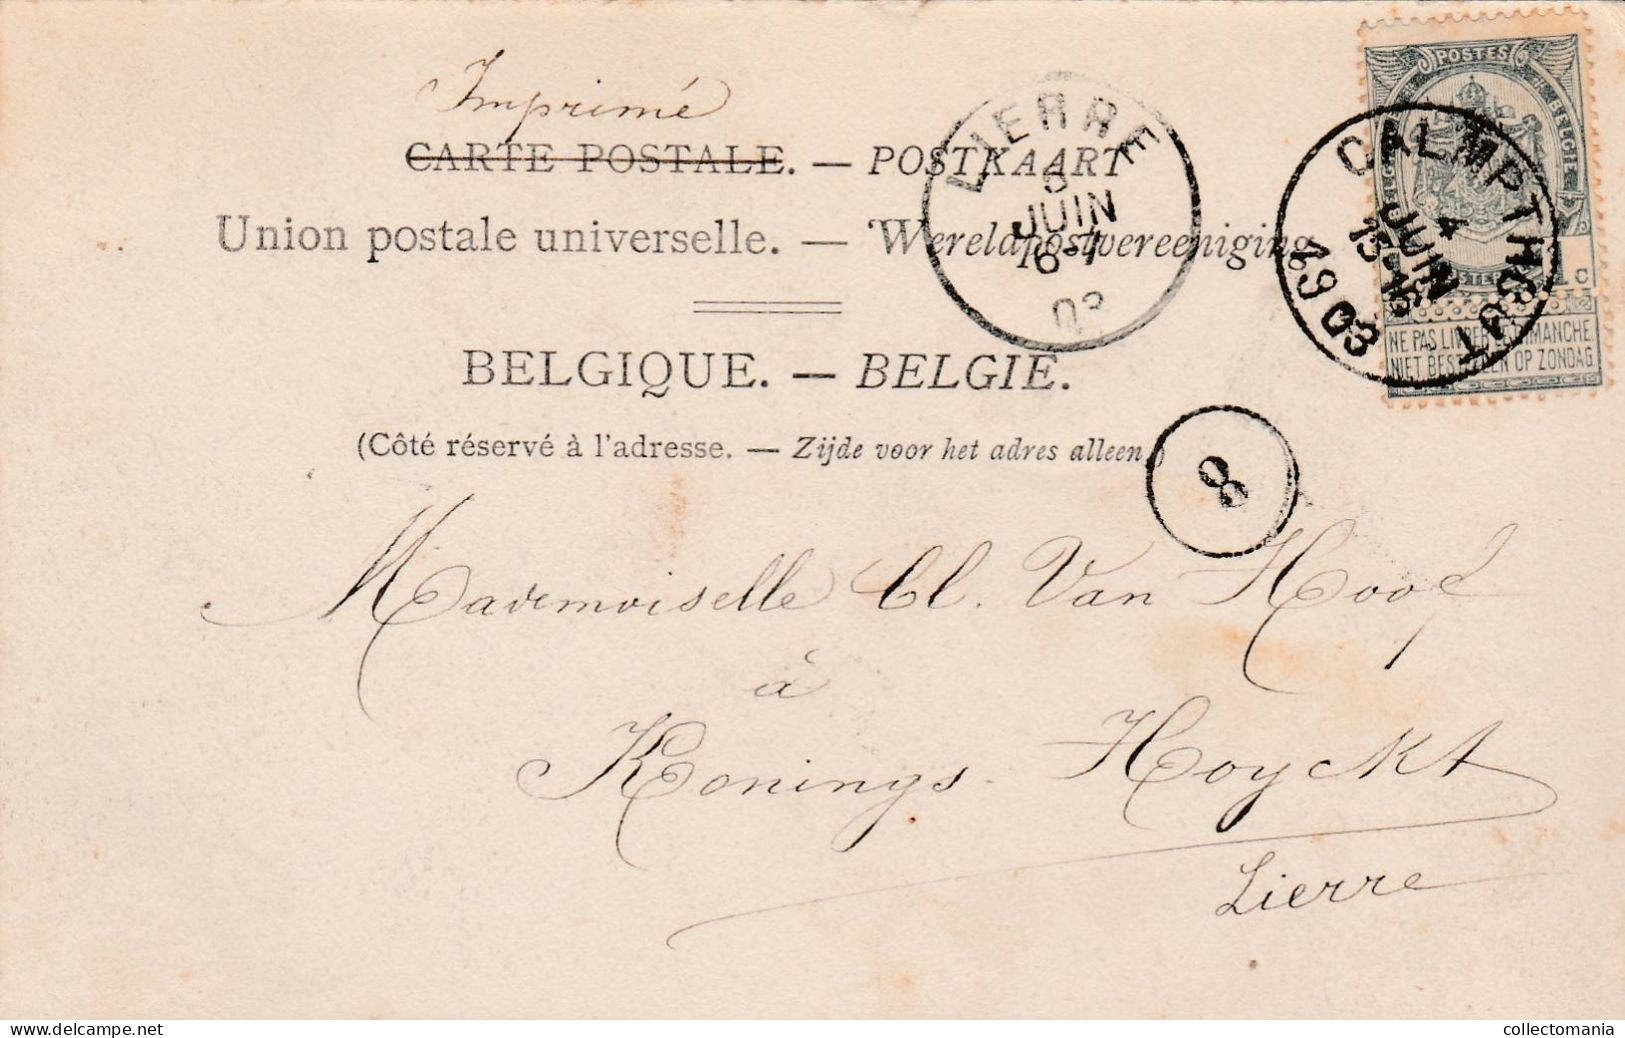 Imprimé
CARTE POSTALE. — POSTKAART
Union postale universelle. — Wereldpostvereeniging
BELGIQUE. — BELGIE.
(Côté réservé à l'adresse. — Zijde voor het adres alleen)
LIERRE
5
JUIN
6-
03
POSTES
BELGIE
1 c
NE PAS LIVRER LE DIMANCHE
NIET BESTELLEN OP ZONDAG
CALMPTHOUT
4
JUIN
15-16
1903
8
Mademoiselle Cl. Van Hoof
à
Konings-Hoyckt
Lierre
collectomania